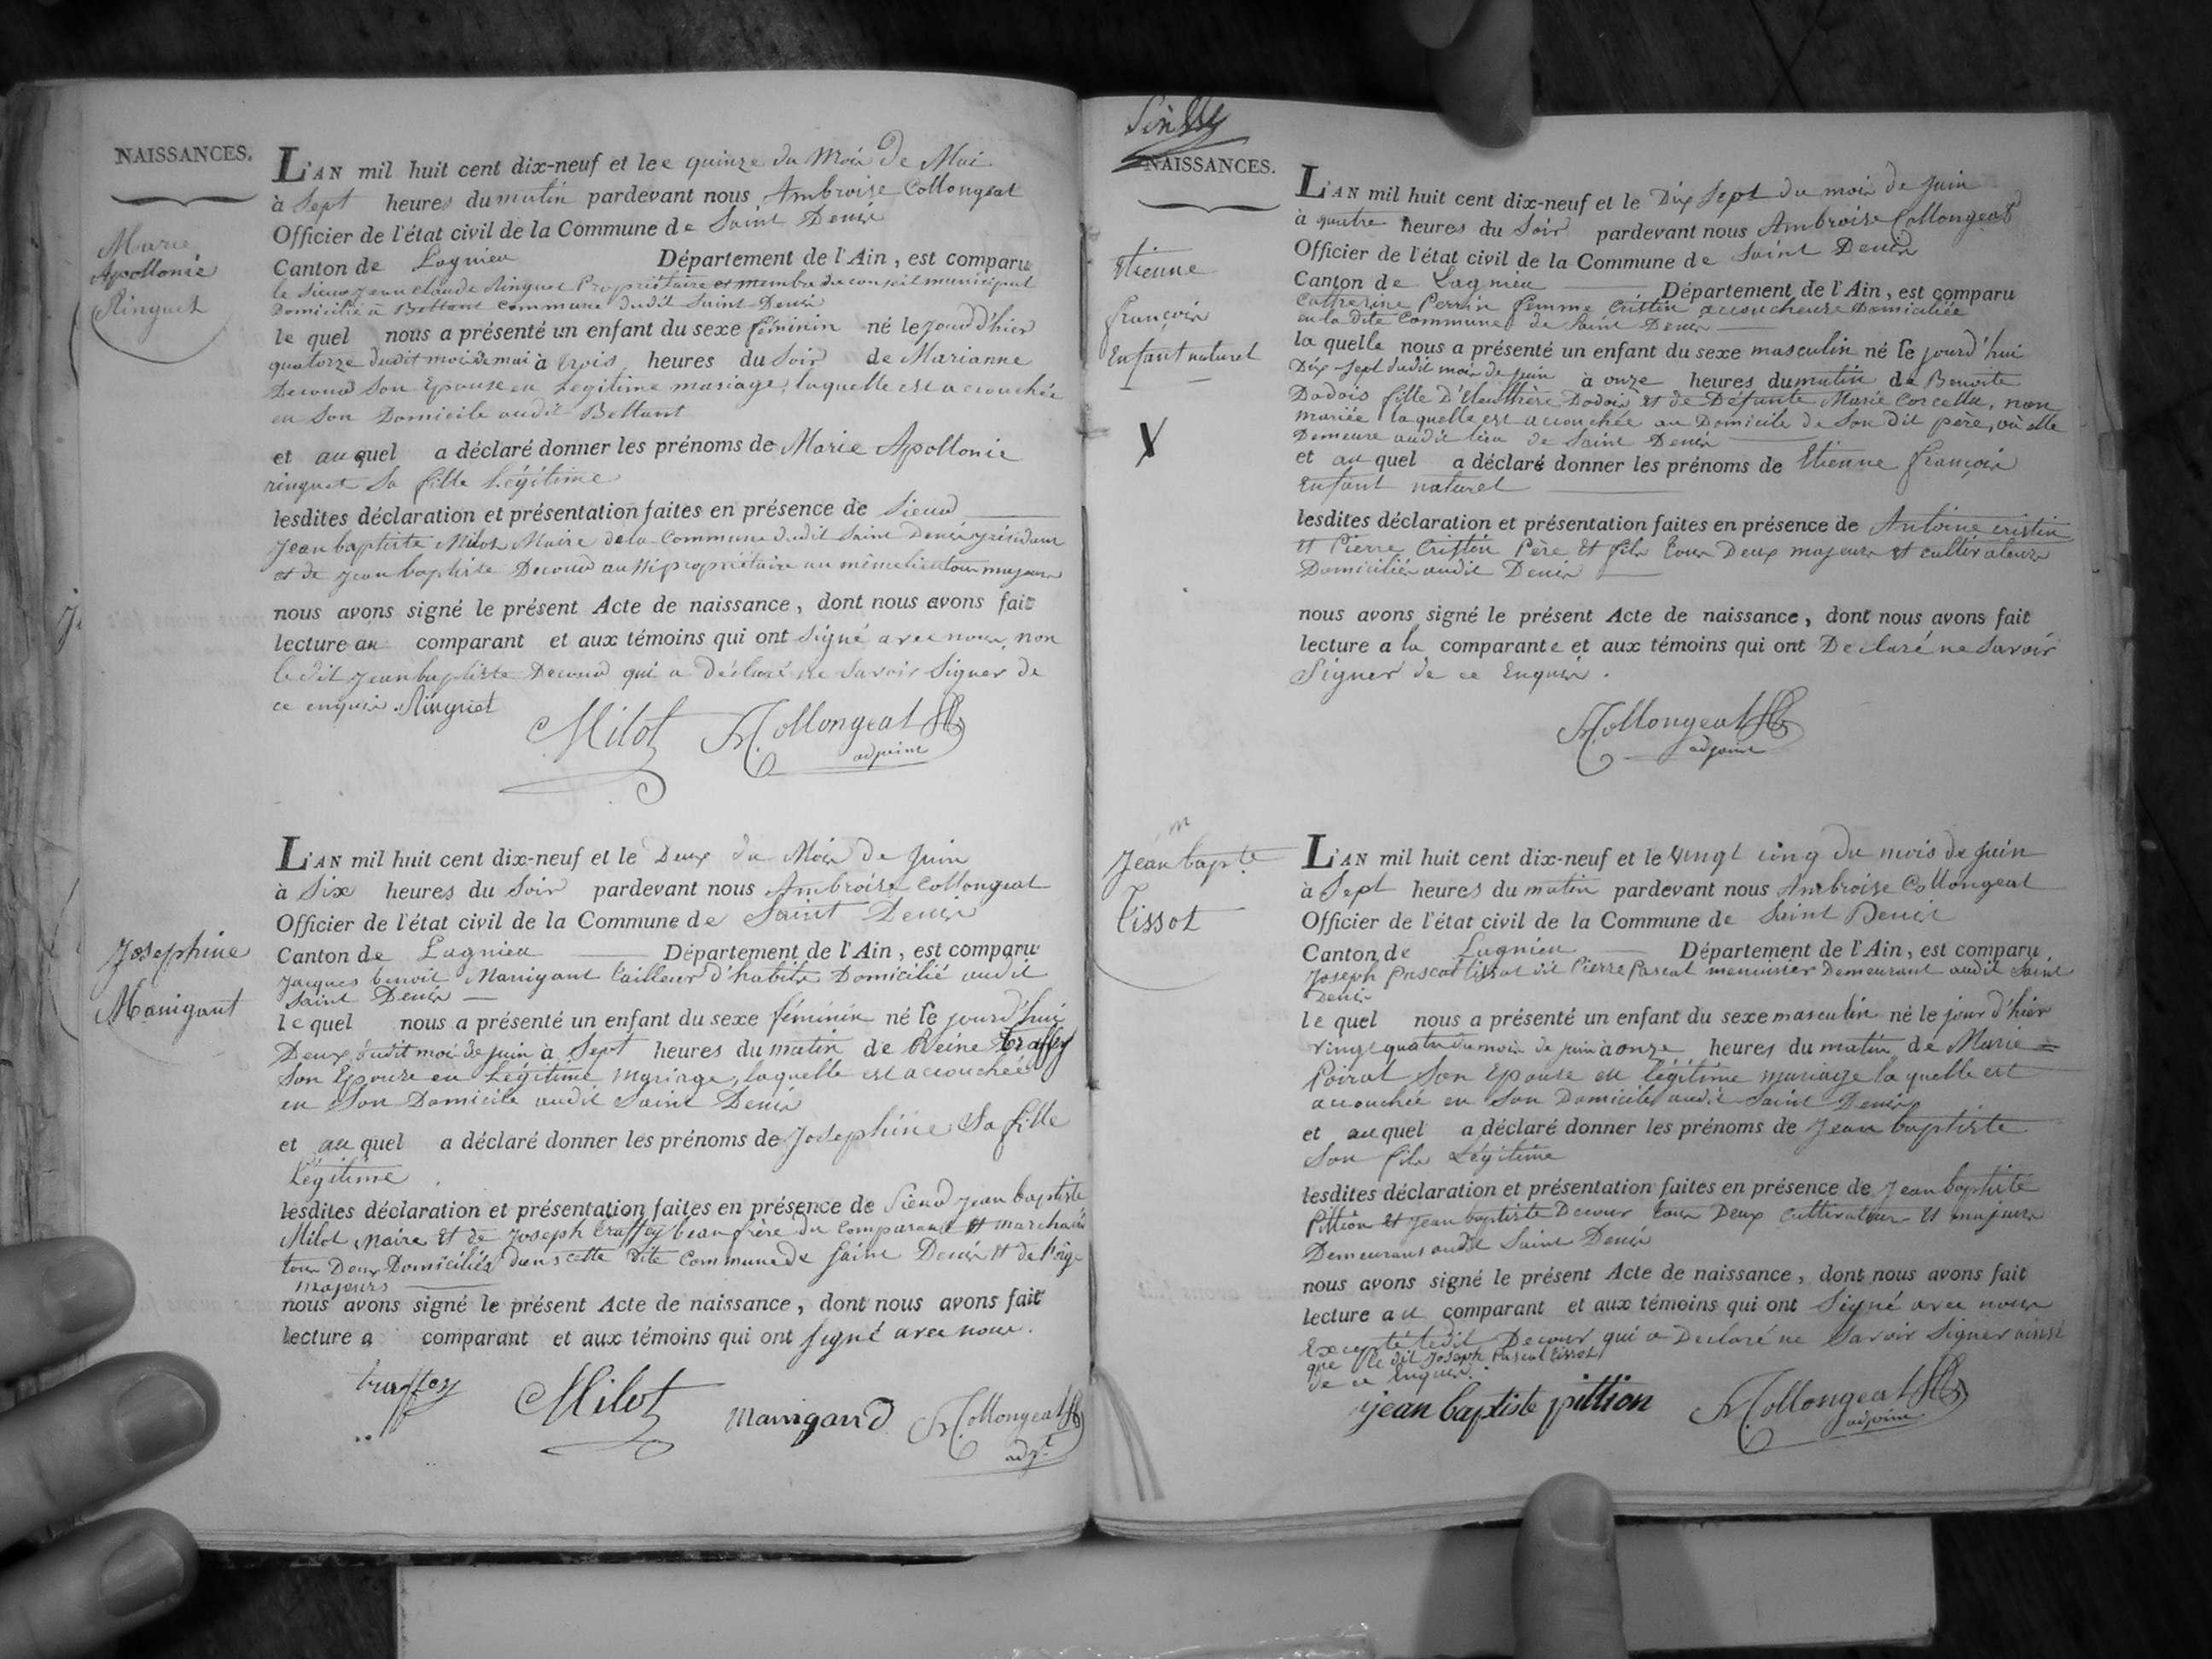 NAISSANCES.
Marie
Apollonie
Ringuet
L'AN mil huit cent dix-neuf et le quinze du Mois De Mai
à Sept heures du matin pardevant nous Ambroise Collongeat
Officier de l'état civil de la Commune de Saint Denis
Canton de Lagnieu Département de l'Ain, est comparu
le Sieur Jean Claude Ringuet Propriétaire et membre du conseil municipal
Domicilié à Bettant Commune dudit Saint Denis
le quel nous a présenté un enfant du sexe féminin né le jour d'hier
quatorze dudit mois de mai à trois heures du Soir de Marianne
Decour Son Epouse en Légitime mariage, laquelle est accouchée
en Son Domicile audit Bettant
et au quel a déclaré donner les prénoms de Marie Apollonie
ringuet Sa fille Légitime
lesdites déclaration et présentation faites en présence de Sieur
Jean baptiste Milot Maire de la Commune dudit Saint Denis y résidant
et de Jean baptiste Decour aussi propriétaire au même lieu tous majeurs
nous avons signé le présent Acte de naissance, dont nous avons fait
lecture au comparant et aux témoins qui ont Signé avec nous, non
le dit Jean baptiste Decour qui a déclaré ne Savoir Signer de
ce enquis. Ringuet
Milot A Collongeat
adjoint
Josephine
Manigant
L'AN mil huit cent dix-neuf et le Deux du Mois De Juin
à Six heures du Soir pardevant nous Ambroise Collongeat
Officier de l'état civil de la Commune de Saint Denis
Canton de Lagnieu Département de l'Ain, est comparu
Jacques benoit Manigant tailleur d'habits Domicilié audit
Saint Denis
le quel nous a présenté un enfant du sexe féminin né le jourd'hui
Deux dudit mois de Juin à Sept heures du matin de Reine traffey
Son Epouse en Légitime mariage, laquelle est accouchée
en Son Domicile audit Saint Denis
et au quel a déclaré donner les prénoms de Josephine Sa fille
Légitime
lesdites déclaration et présentation faites en présence de Sieur Jean baptiste
Milot Maire Et de Joseph traffey beau frère du comparant Et marchand
tous Deux Domiciliés dans cette dite Commune de Saint Denis Et de l'age
majeurs
nous avons signé le présent Acte de naissance, dont nous avons fait
lecture a comparant et aux témoins qui ont Signé avec nous.
traffey Milot Manigand A Collongeat
adjt
NAISSANCES.
Etienne
françois
Enfant naturel
X
L'AN mil huit cent dix-neuf et le Dix Sept du mois de Juin
à quatre heures du Soir pardevant nous Ambroise Collongeat
Officier de l'état civil de la Commune de Saint Denis
Canton de Lagnieu Département de l'Ain, est comparu
Catherine Perrin femme Cristin accoucheuse Domiciliée
en la dite Commune de Saint Denis
la quelle nous a présenté un enfant du sexe masculin né le jourd'hui
Dix-Sept dudit mois de Juin à onze heures du matin de Benoite
Dodois fille D'Eleuthère Dodois et de Défunte Marie Corcella, non
mariée laquelle est accouchée au Domicile de Son dit père, où elle
Demeure audit lieu de Saint Denis
et au quel a déclaré donner les prénoms de Etienne françois
Enfant naturel
lesdites déclaration et présentation faites en présence de Antoine cristin
Et Pierre Cristin Père Et fils tous Deux majeurs et cultivateurs
Domiciliés audit Denis
nous avons signé le présent Acte de naissance, dont nous avons fait
lecture a la comparante et aux témoins qui ont Declaré ne Savoir
Signer de ce Enquis.
A Collongeat
adjoint
m
Jean bapte
Tissot
L'AN mil huit cent dix-neuf et le Vingt cinq du mois de Juin
à Sept heures du matin pardevant nous Ambroise Collongeat
Officier de l'état civil de la Commune de Saint Denis
Canton de Lagnieu Département de l'Ain, est comparu
Joseph Pascal tissot dit Pierre Pascal menuisier Demeurant audit Saint
Denis
le quel nous a présenté un enfant du sexe masculin né le jour d'hier
vingt quatre du mois de juin à onze heures du matin de Marie
Poirat Son Epouse en légitime mariage la quelle est
accouchée en Son Domicile audit Saint Denis
et au quel a déclaré donner les prénoms de Jean baptiste
Son fils Légitime
lesdites déclaration et présentation faites en présence de Jean baptiste
Pittion Et Jean baptiste Decour tous Deux cultivateurs Et majeurs
Demeurans audit Saint Denis
nous avons signé le présent Acte de naissance, dont nous avons fait
lecture au comparant et aux témoins qui ont Signé avec nous
Excepté ledit Decour qui a Declaré ne Savoir Signer ainsi
que le dit Joseph Pascal tissot
de ce Enquis.
jean baptiste pittion A Collongeat
adjoint